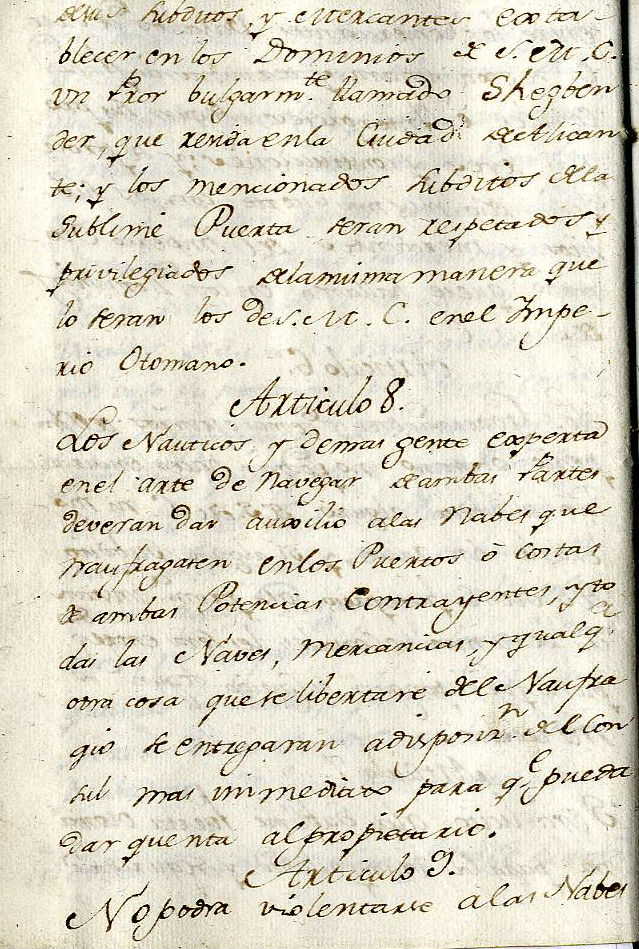 de sus subditos, y Mercantes esta-
blecer en los Dominios de S. M. C.
un Pror bulgarmte llamado Shegben
der, que resida en la Ciudad de Alican
te; y los mencionados subditos de la
Sublime Puerta seran respetados y
privilegiados de la misma manera que
lo seran los de S. M. C. en el Impe-
rio Otomano.
Articulo 8.
Los Nauticos, y demas gente experta
en el arte de navegar de ambas Partes
deveran dar auxilio a las Nabes que
naufragasen en los Puertos ó Costas
de ambas Potencias Contrayentes, y to
das las Naves, mercancias, y qualqa
otra cosa que se libertare del Naufra
gio se entregaran a disposin del Con
sul mas immediato para qe pueda
dar quenta al propietario.
Articulo 9.
No podra violentarse a las Nabes